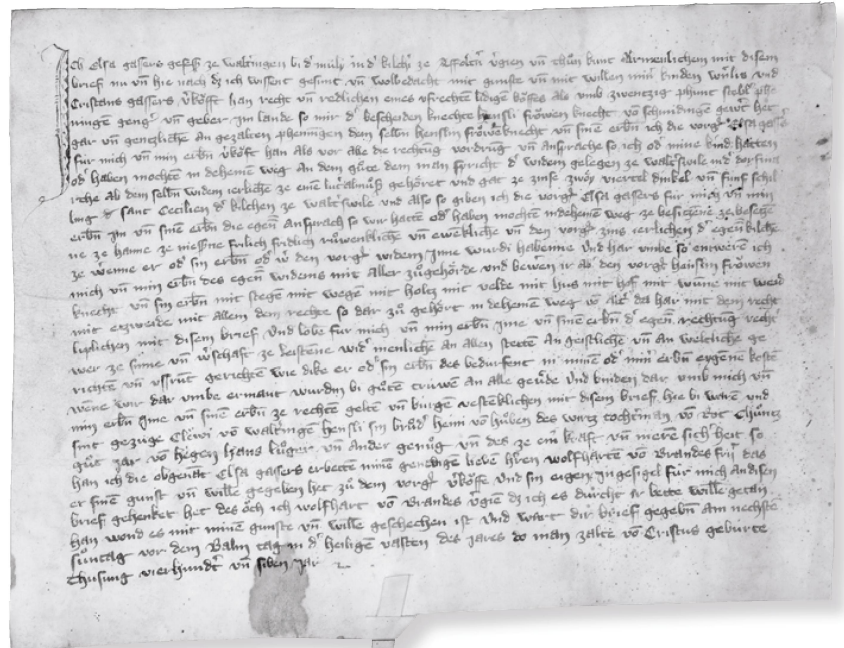 Ich Elsa gassers gesessē ze waltringen bi dʳ müly in dʳ kilchʳi ze vʳgien vn̄ tůn kunt Aʳlmenlichem mit disem
brief nu vn̄ hie nach dz ich wissent gesunt vn̄ wolbedacht mit gunste vn̄ mit willen minʳ kinden wʳnlis vnd
Cristans gassers vʳköfft han recht vn̄ redlichen eines vfrechten ledigē köffes als vmb zwentzig phunt stebl phe
ningen gengʳ vn̄ geber im lande so mir dʳ bescheiden knechte hensli fröwen knecht vō schnidingen gewʳt het
gar vn̄ gentzliche an gezalten phenningen dem selbn̄ henslin fröwēknecht vn̄ sinē erbn̄ ich die vorgʳ Elsa gassʳs
für mich vn̄ min erbn̄ vʳköft han als vor abe die rechtūg vordrūg vn̄ ansprache so ich od mine kind hatten
odʳ haben mochtē in deheinē weg an dem gůte dem man spricht dʳ widem gelegen ze waltʳswile in dʳ dorfma
rche ab dem selbn̄ widem ierliche ze einē gehöret vnd gat ze zinse zwöy viertel dinkel vn̄ fünf schil
ling dʳ sant Cecilien dʳ kilchen ze waltʳswile vnd also so giben ich die vorgʳ Elsa gassers für mich vn̄ min
erbn̄ im vn̄ sinē erbn̄ die egenʳ ansprach so wir hattē odʳ haben mochtē in deheinē weg ze besitzene ze besetze
ne ze hanne ze niessene frilich fridlich růwenkliche vn̄ ewekliche vn̄ den vorgʳ zins ierlichen dʳ egenʳ kilche
ze wʳenne er odʳ sin erbn̄ odʳ wʳ den vorgʳ widem Inne wurdi habenne Vnd har vmbe so entweren ich
mich vn̄ min erbn̄ des egenʳ widems mit aller zůgehörde vnd bewʳen ir ab den vorgʳ henslin fröwen
knecht vn̄ sin erbn̄ mit stegē mit wegē mit holtz mit velde mit hus mit hof mit wūne mit weid
mit etzweide mit allem dem rechte so dar zů gehört in deheinē weg vō alʳ da har mit dem recht
liplichen mit disem brief Vnd lobe für mich vn̄ min erbn̄ Ime vn̄ sinē erbn̄ dʳ egenʳ rechtūg recht
wer ze sinne vn̄ wʳschaft ze leistene widʳ menliche an allen stettē an geistliche vn̄ an weltliche ge
richten vn̄ vssrūt gerichtē wie dike er odʳ sin erbn̄ des bedurfent in minē odʳ minʳ erbn̄ eygene kostē
wene wir dar vmbe ermant wurdin bi gůtē trüwen an alle geuʳde Vnd binden dar vmb mich vn̄
min erbn̄ Ime vn̄ sinē erbn̄ ze rechtē geltē vn̄ bürgē vesteklichen mit disem brief hie bi warē vnd
sint gezüge Clewi vō waltringen hensli sin brůdʳ heini vō hůben des wartz tochtʳman vō Rot Chůntz
gůt iar vō hegen hans krůger vn̄ ander genůg vn̄ des ze einʳ kraft vn̄ merē sichʳheit so
han ich die obgenāt Elsa gassers erbettē minē genedigē lieben hʳren wolfhartē vō Brandes frij das
er sinē gunst vn̄ wille gegeben het zů dem vorgʳ vʳköffe Vnd sin eigen ingesigel für mich an disen
brief gehenket het des öch ich wolfhart vō Brandes vʳgien dz ich es durch ir bette wille getan
han wond es mit minē gunste vn̄ wille geschechen ist Vnd wart dir brief gegebn̄ am nechstē
suntag vor dem Balm tag in dʳ heiligē vasten des jares do man zalte vō Cristus geburte
Thusung vierhundʳt vn̄ siben jar